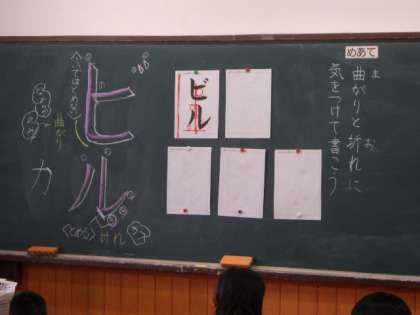 めあて
曲がりと折れに
ま
お
気をつけて書こう
ビル
ビル
曲がり
折れ
カ